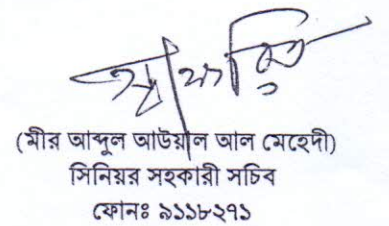 (মীর আব্দুল আউয়াল আল মেহেদী)
সিনিয়র সহকারী সচিব
ফোনঃ ৯১১৮২৭১